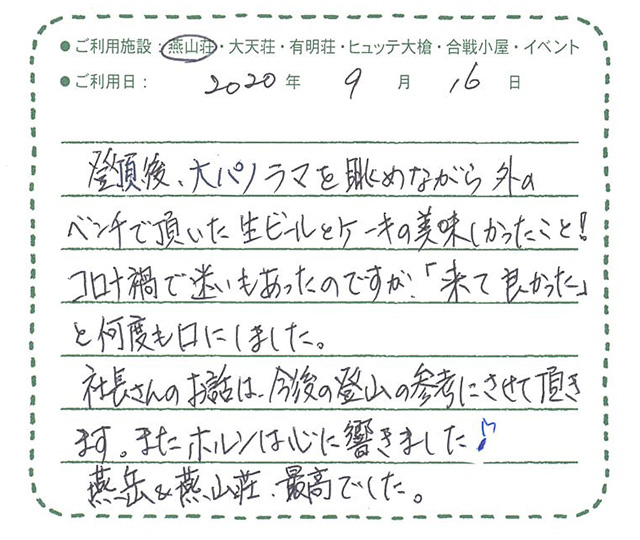 ●ご利用施設：燕山荘・大天荘・有明荘・ヒュッテ大槍・合戦小屋・イベント
●ご利用日： 2020年 9月 16日
登頂後、大パノラマを眺めながら外の
ベンチで頂いた生ビールとケーキの美味しかったこと!
コロナ禍で迷いもあったのですが、「来て良かった」
と何度も口にしました。
社長さんのお話は、今後の登山の参考にさせて頂き
ます。またホルンは心に響きました♪
燕岳&燕山荘、最高でした。